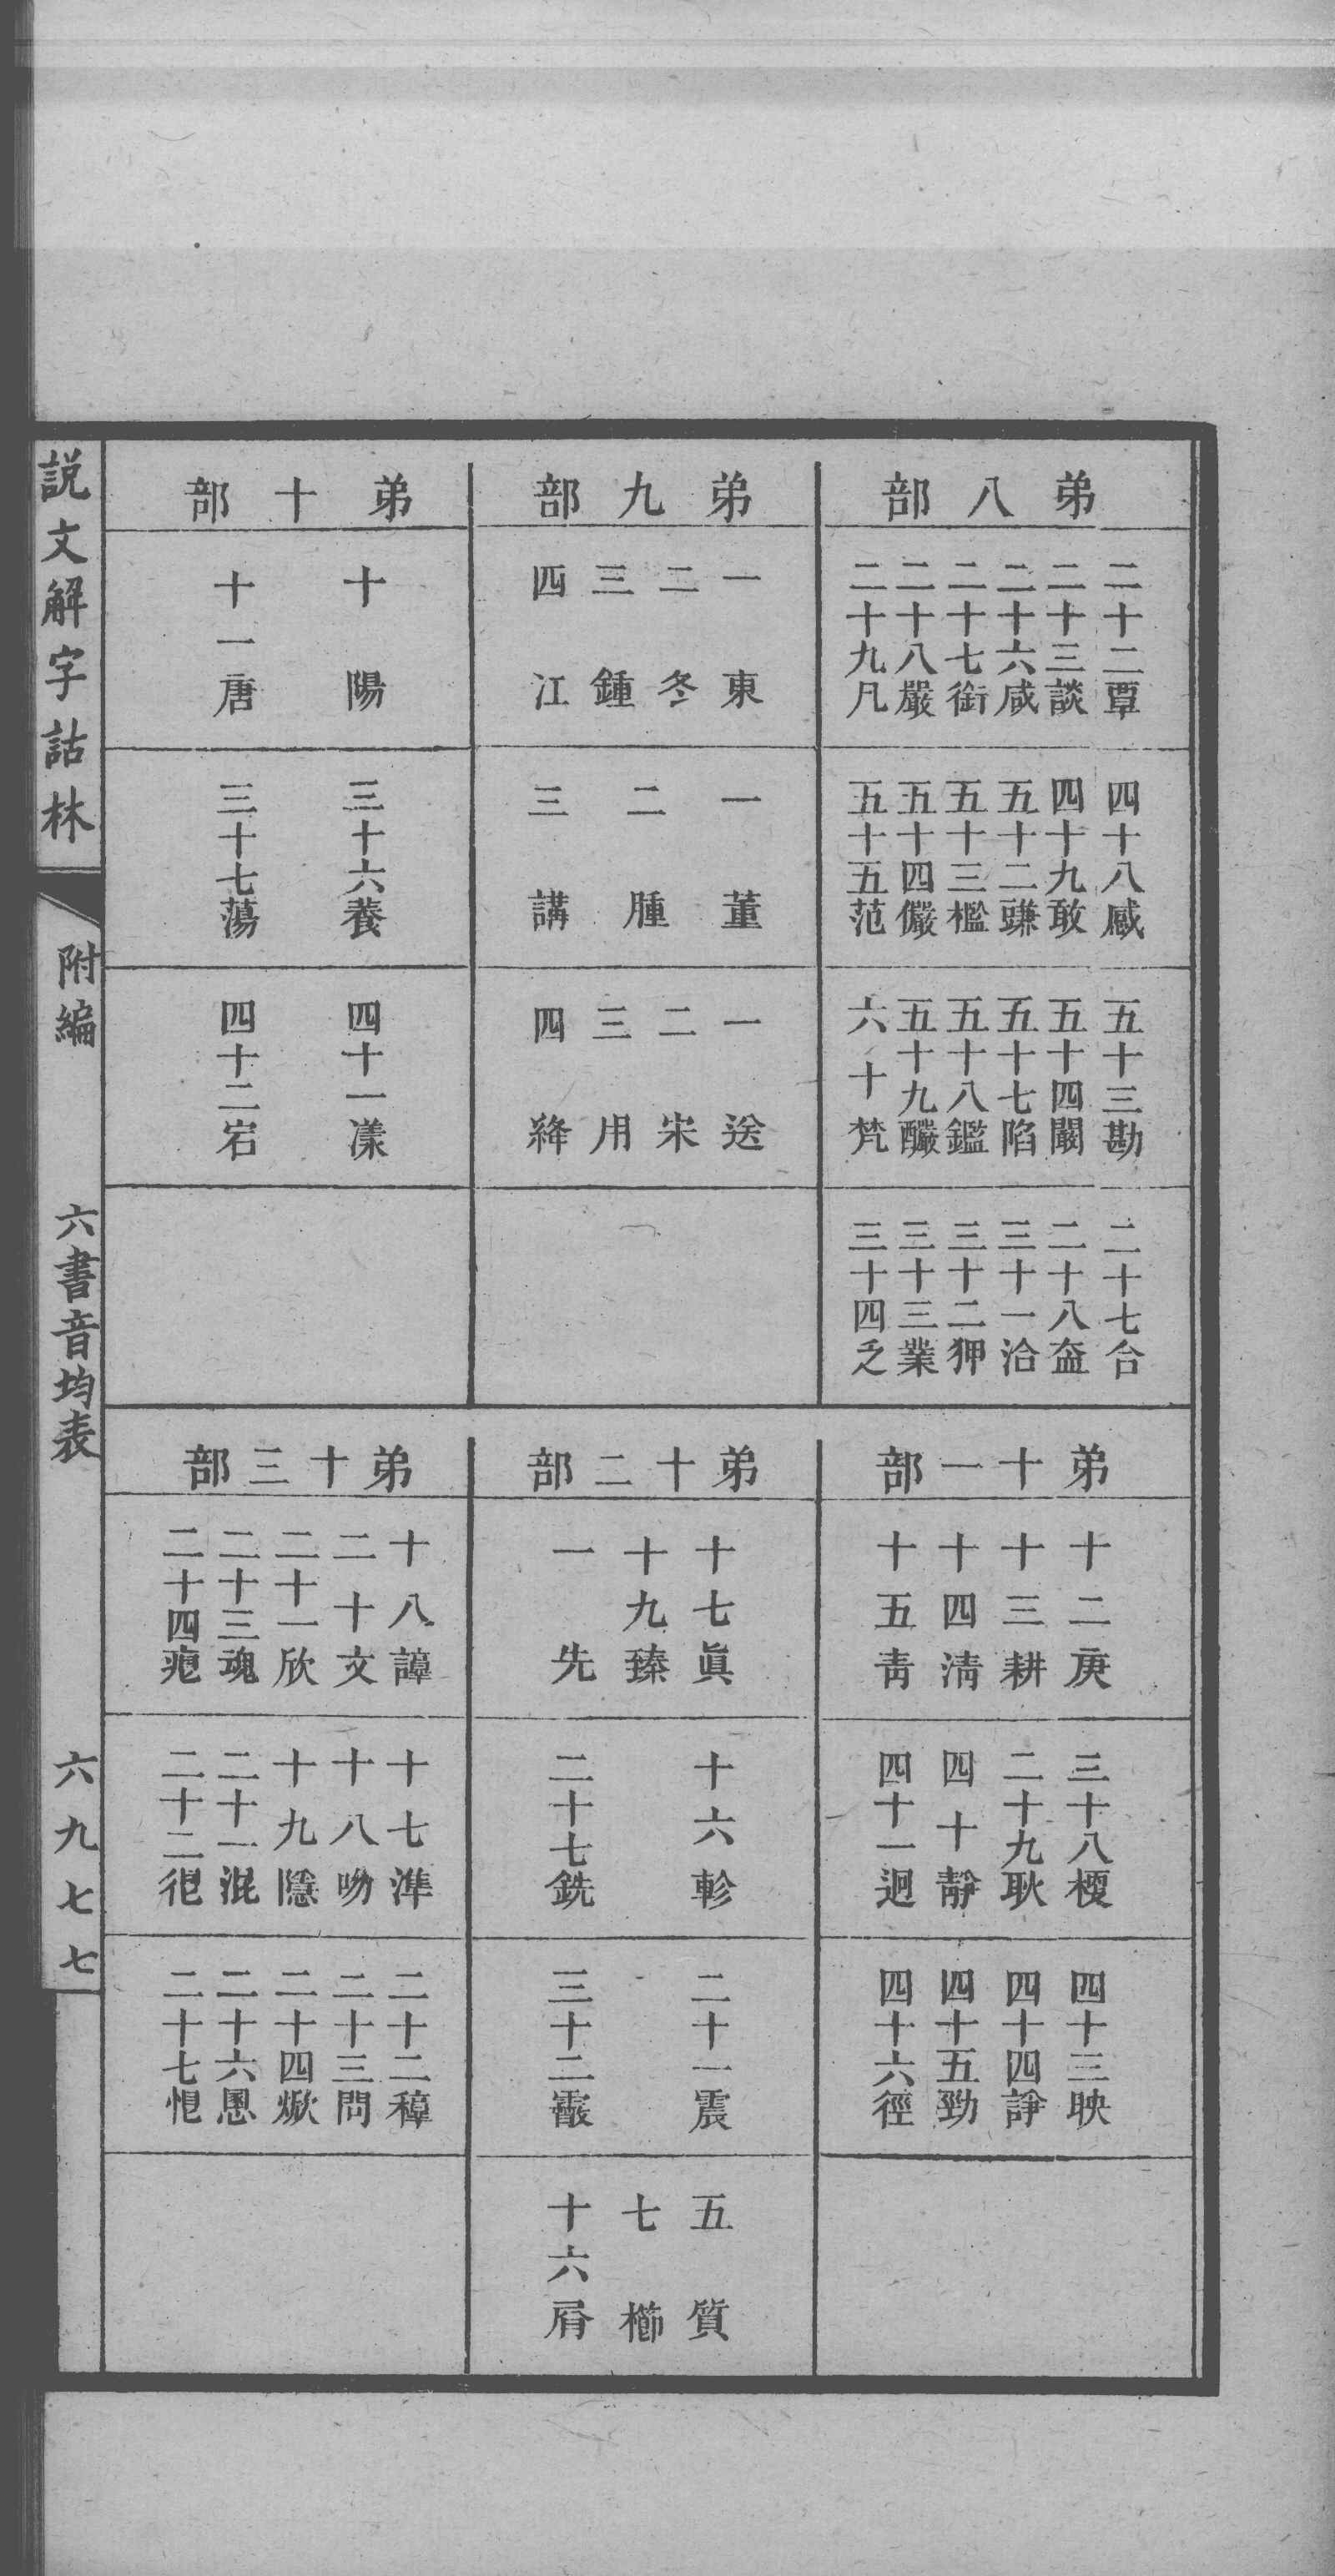 弟八部
二十二覃
二十三談
二十六咸
二十七銜
二十八嚴
二十九凡
四十八感
四十九敢
五十二豏
五十三檻
五十四儼
五十五范
五十三勘
五十四闞
五十七陷
五十八鑑
五十九釅
六十梵
二十七合
二十八盇
三十一洽
三十二狎
三十三業
三十四乏
弟九部
一東
二冬
三鍾
四江
一董
二腫
三講
一送
二宋
三用
四絳
弟十部
十陽
十一唐
三十六養
三十七蕩
四十一漾
四十二宕
弟十一部
十二庚
十三耕
十四清
十五青
三十八梗
二十九耿
四十靜
四十一迥
四十三映
四十四諍
四十五勁
四十六徑
弟十二部
十七眞
十九臻
一先
十六軫
二十七銑
二十一震
三十二霰
五質
七櫛
十六屑
弟十三部
十八諄
二十文
二十一欣
二十三魂
二十四痕
十七準
十八吻
十九隱
二十一混
二十二很
二十二稕
二十三問
二十四焮
二十六慁
二十七恨
説文解字詁林
附編
六書音均表
六九七七